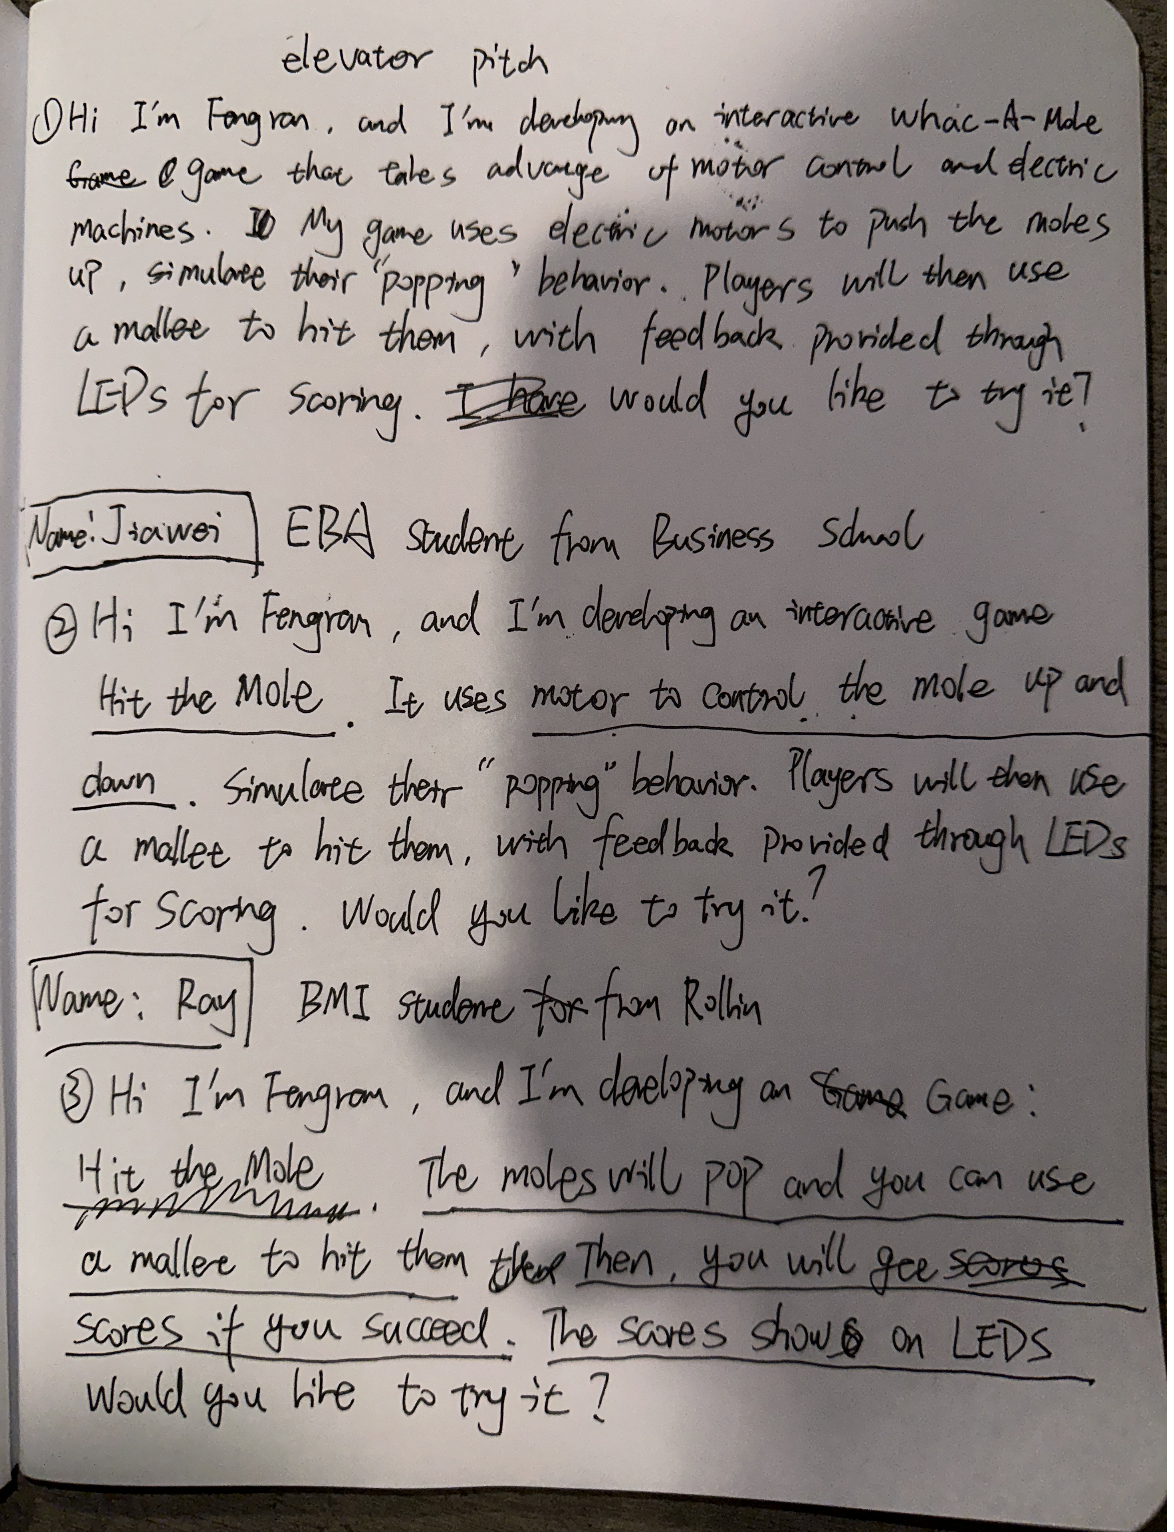 elevator pitch
① Hi I'm Fengran, and I'm developing an interactive Whac-A-Mole
Game game that takes advange of motor control and electric
machines. My game uses electric motors to push the moles
up, simulate their "popping" behavior. Players will then use
a mallet to hit them, with feedback provided through
LEDs for scoring. I have would you like to try it?
Name: Jiawei EBA student from Business School
② Hi I'm Fengran, and I'm developing an interactive game
Hit the Mole. It uses motor to control the mole up and
down. Simulate their "popping" behavior. Players will then use
a mallet to hit them, with feedback provided through LEDs
for scoring. Would you like to try it?
Name: Ray BMI student for from Rollin
③ Hi I'm Fengran, and I'm developing an Game Game:
Hit the Mole. The moles will pop and you can use
a mallet to hit them then Then, you will get scores
scores if you succeed. The scores shows on LEDS
Would you like to try it?